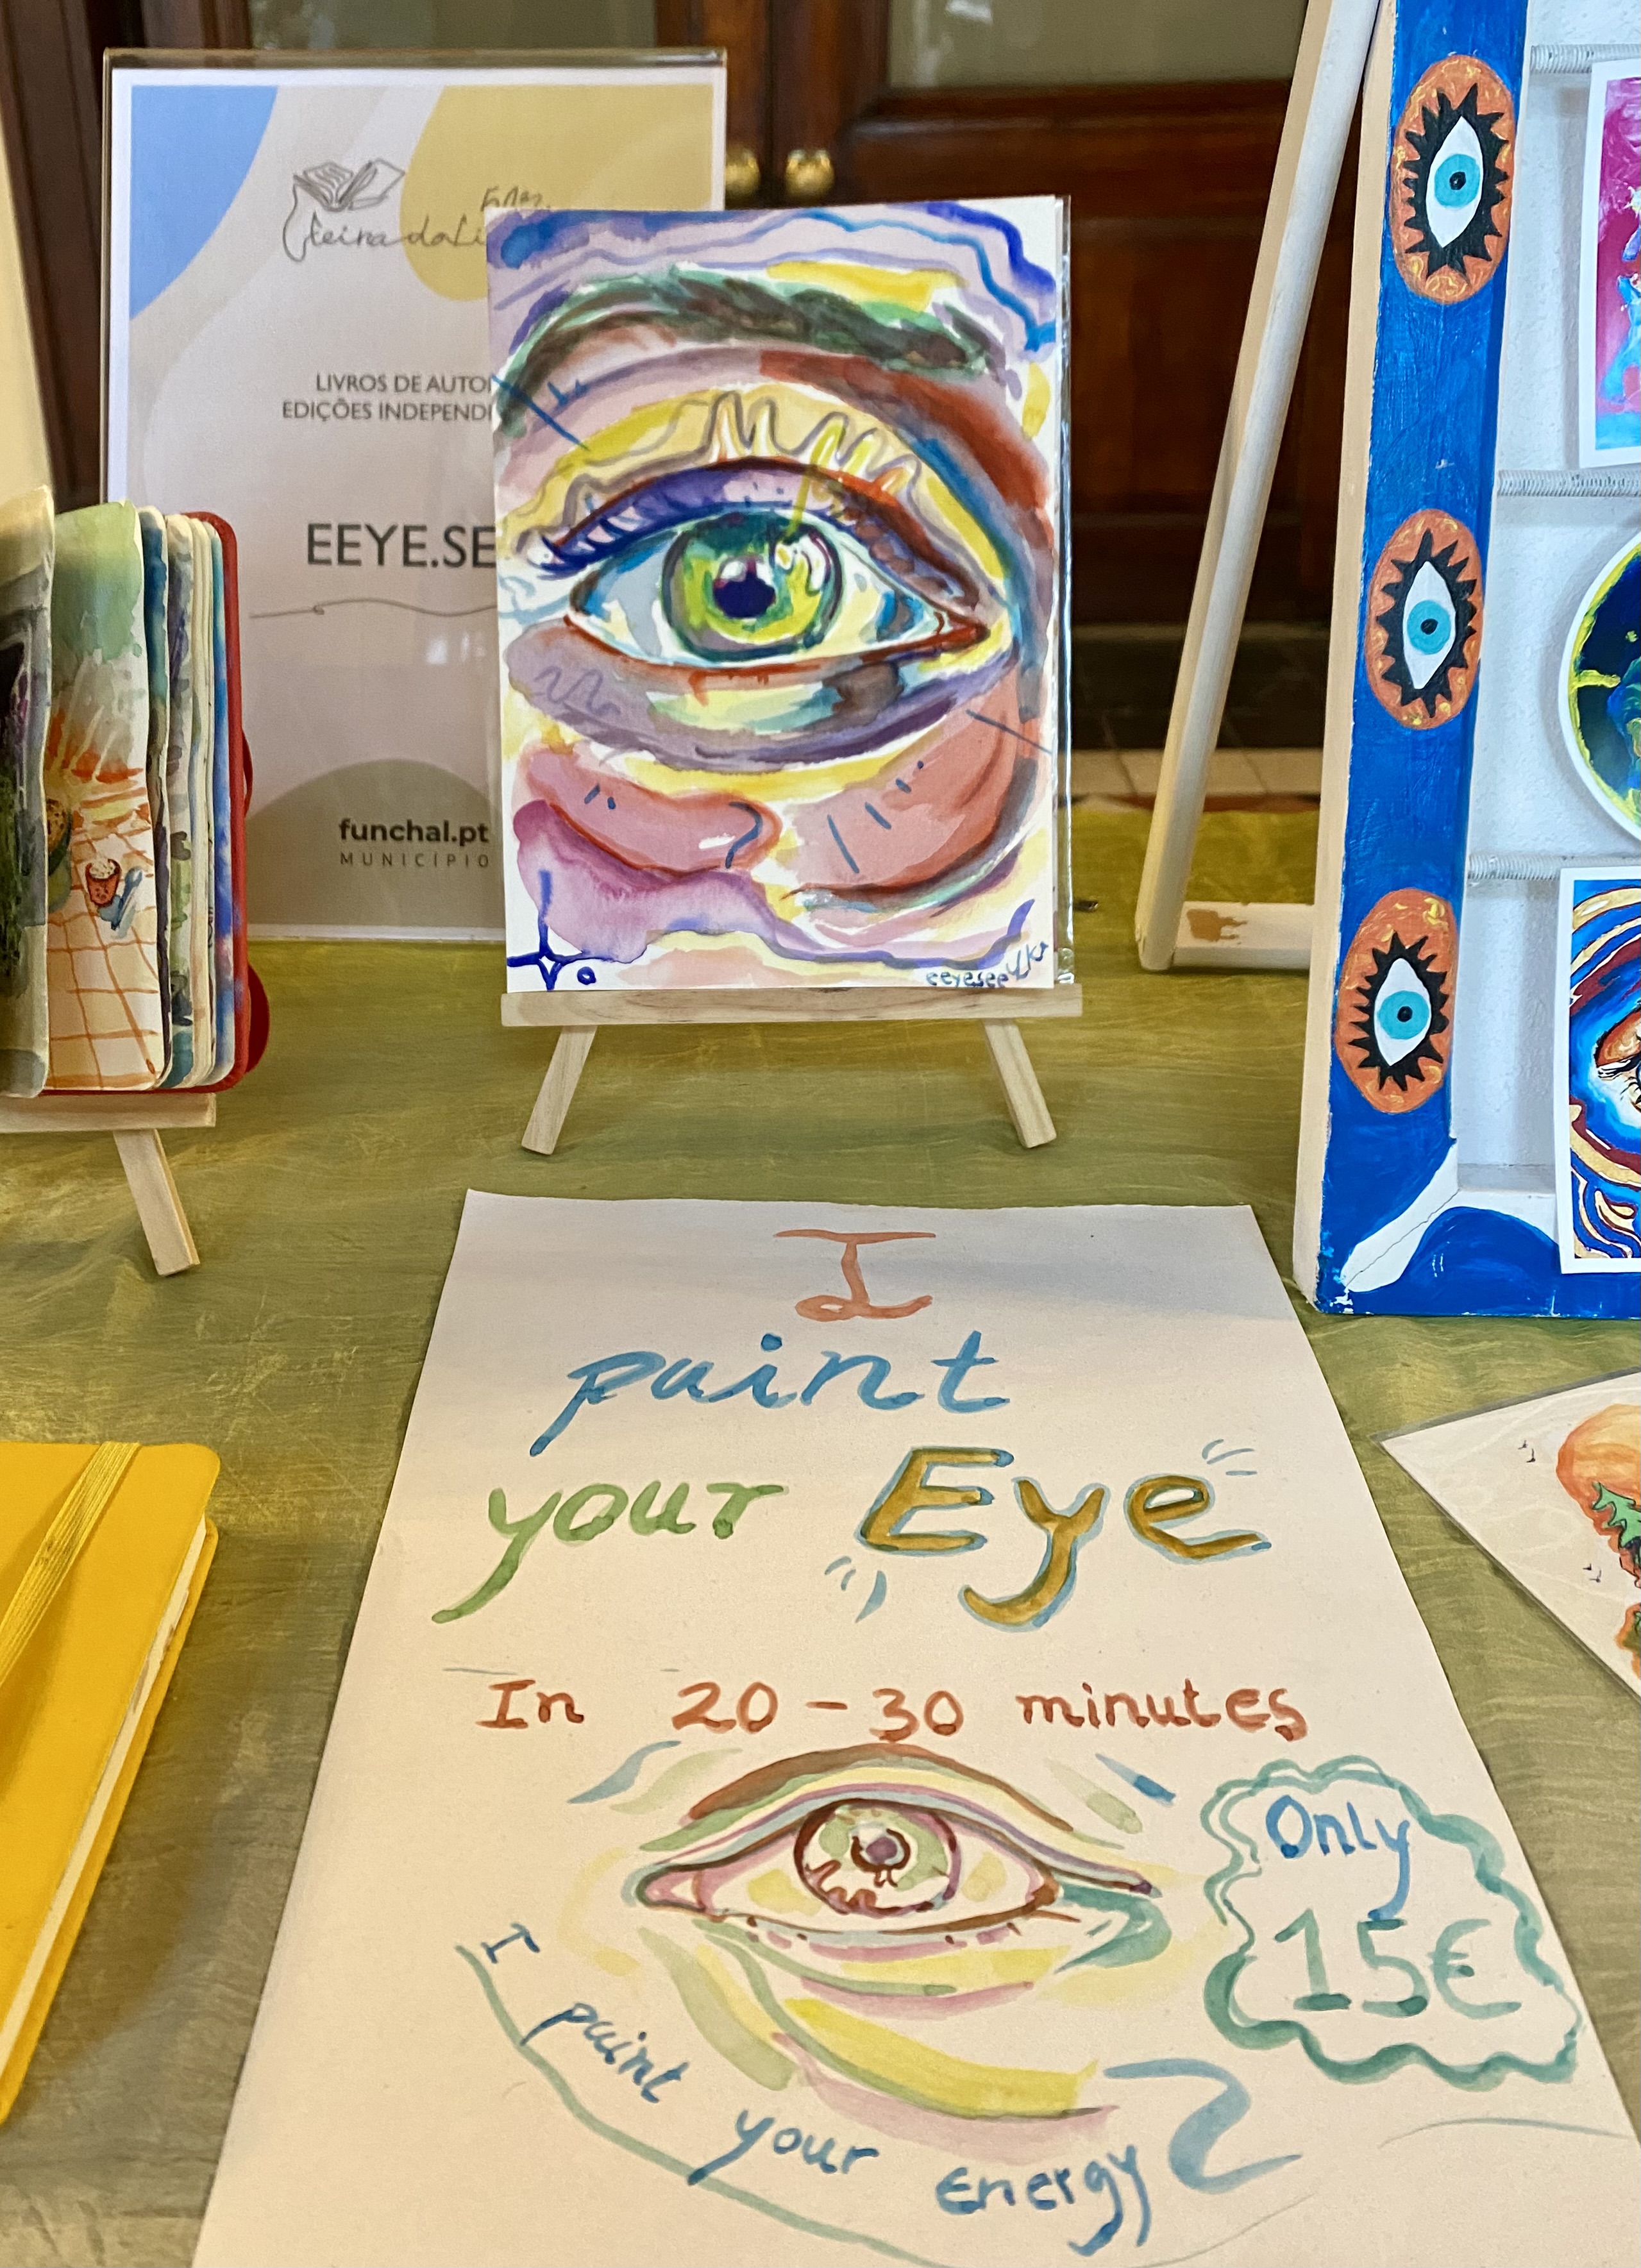 feira do Li
LIVROS DE AUTO
EDIÇÕES INDEPEND
EEYE.SE
funchal.pt
MUNICÍPIO
eeyesee
I
paint
your Eye
In 20-30 minutes
Only
15€
I paint your energy